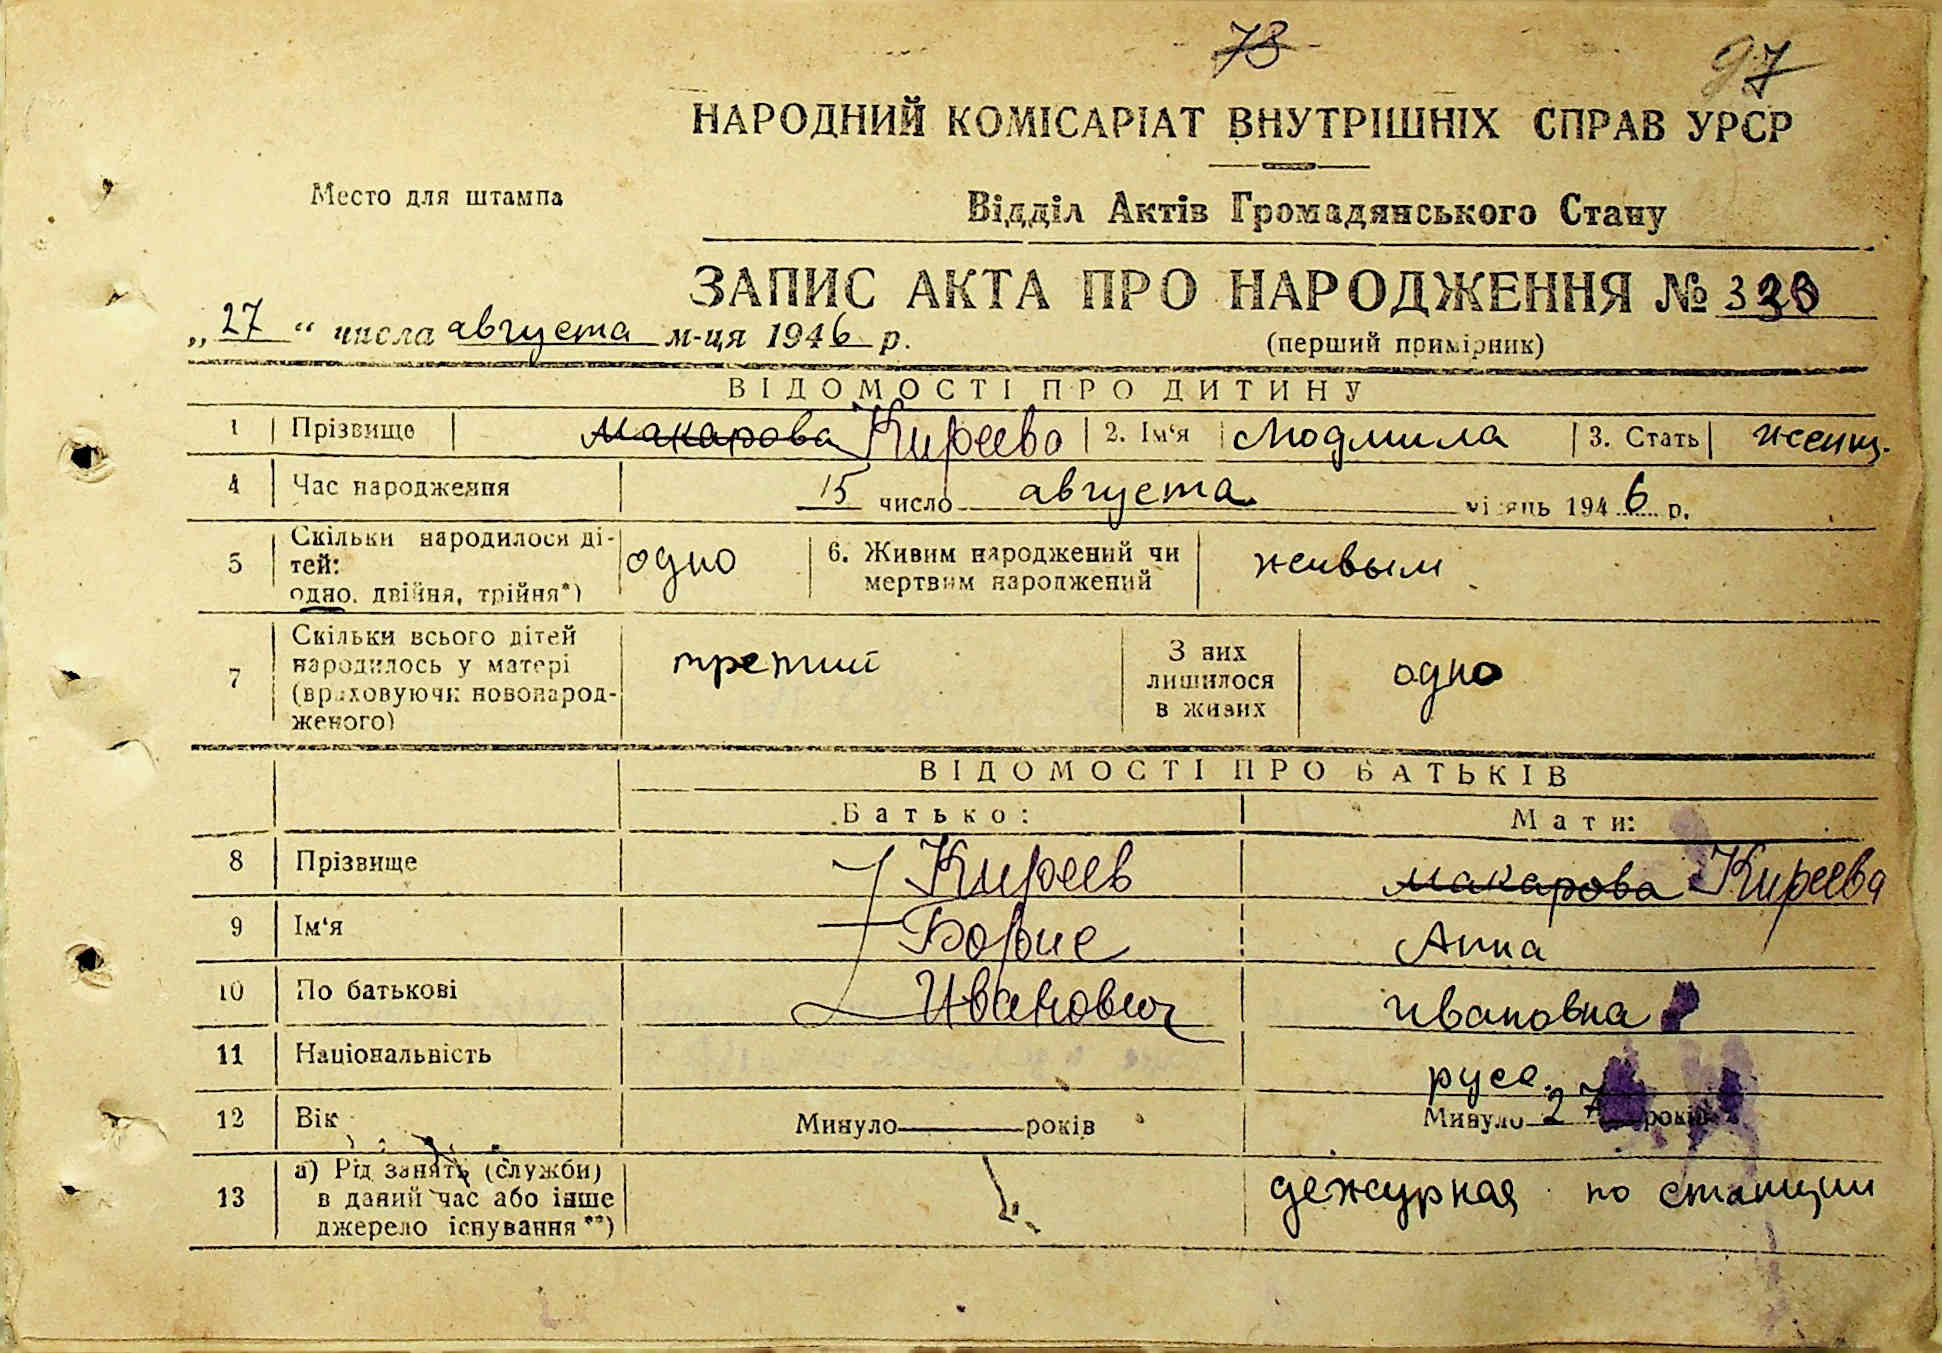 73
97
НАРОДНИЙ КОМІСАРІАТ ВНУТРІШНІХ СПРАВ УРСР
Место для штампа
Відділ Актів Громадянського Стану
ЗАПИС АКТА ПРО НАРОДЖЕННЯ №
„27“ числа августа м-ця 1946 р.
(перший примірник)
ВІДОМОСТІ ПРО ДИТИНУ
1 Прізвище Макарова Киреева 2. Ім‘я Людмила 3. Стать женщ.
4 Час народження 15 число августа місяць 1946 р.
5 Скільки народилося ді-
тей:
одно, двійня, трійня*) одно 6. Живим народжений чи
мертвим народжений живым
7 Скільки всього дітей
народилось у матері
(враховуючи новонарод-
женого) третий З них
лишилося
в живих одно
ВІДОМОСТІ ПРО БАТЬКІВ
Батько: Мати:
8 Прізвище Киреев Макарова Киреева
9 Ім‘я Борис Анна
10 По батькові Иванович Ивановна
11 Національність русс.
12 Вік Минуло років Минуло 27 років
13 а) Рід занять (служби)
в даний час або інше
джерело існування**) дежурная по станции